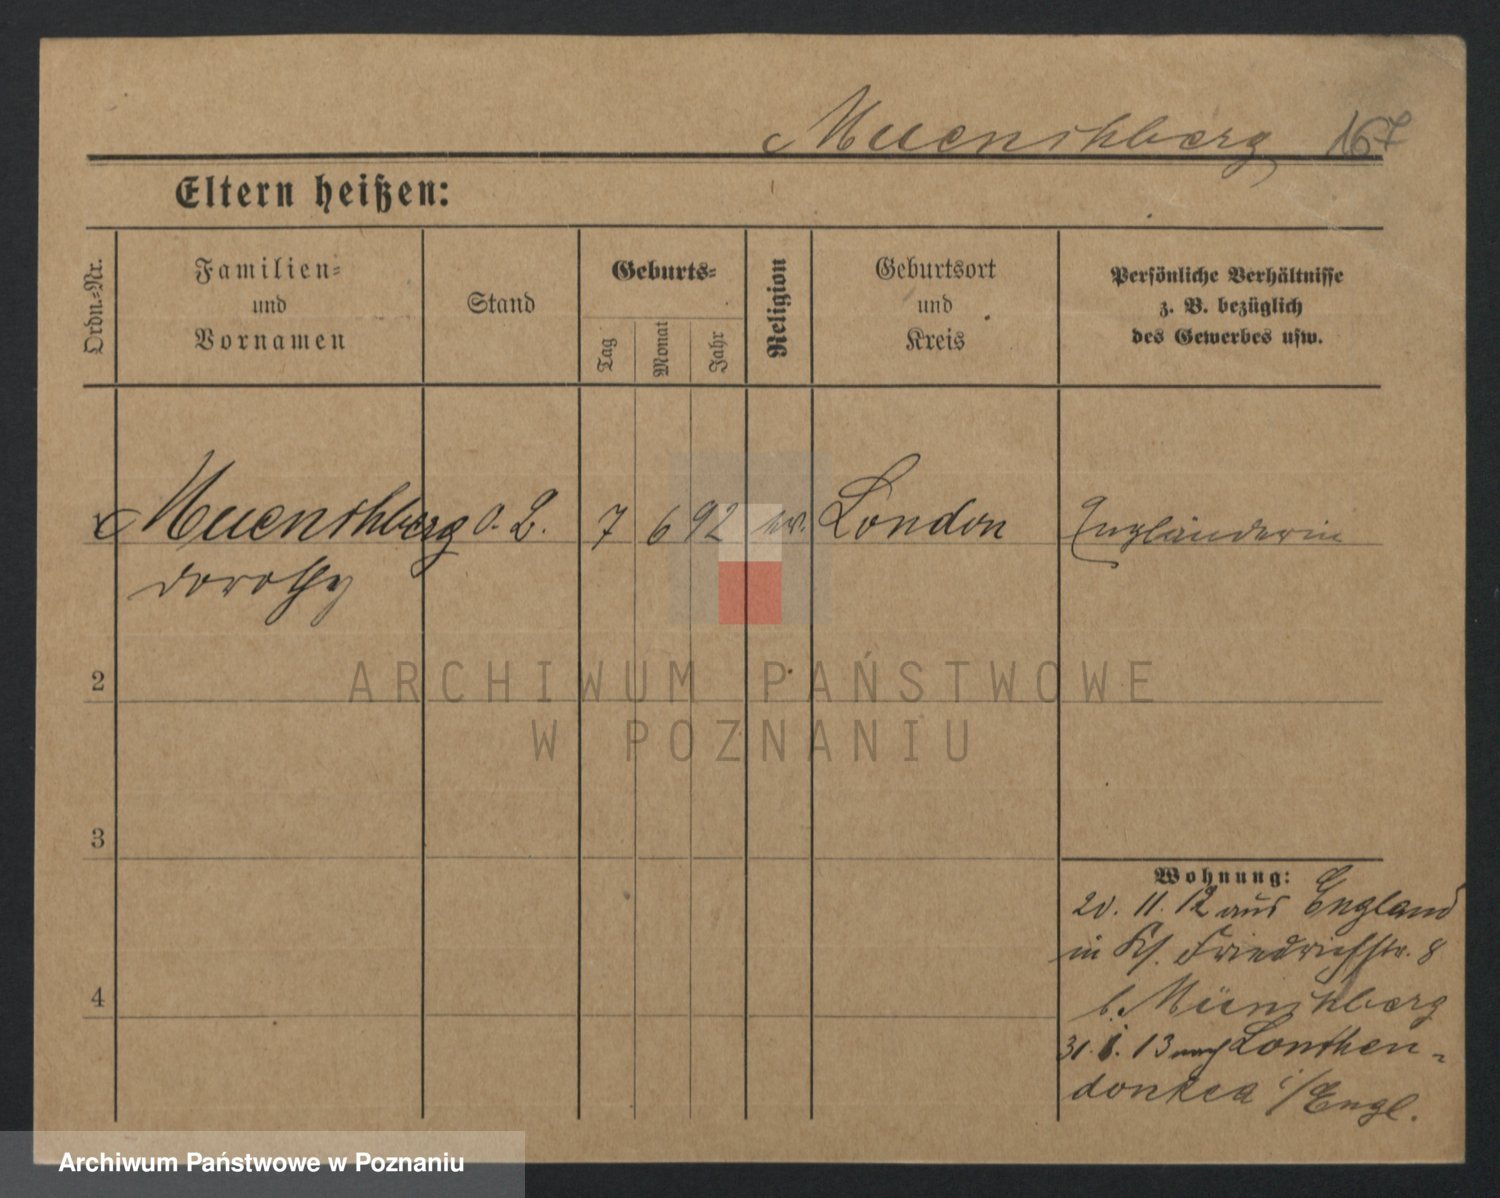 Muenchberg 167
Eltern heißen:
Ordn.-Nr.
Familien-
und
Vornamen
Stand
Geburts-
Tag
Monat
Jahr
Religion
Geburtsort
und
Kreis
Persönliche Verhältnisse
z. B. bezüglich
des Gewerbes usw.
1 Muenchberg o. B. 7 6 92 London Engländerin
Dorothy
2
3
4
Wohnung:
20. 11. 12 aus England
in Friedrichstr. 8
b. Münchberg
31. 1. 13 nach
i/Engl.
ARCHIWUM PAŃSTWOWE
W POZNANIU
Archiwum Państwowe w Poznaniu